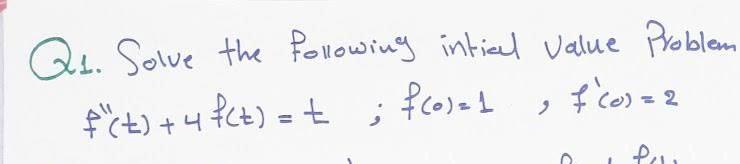 Q1. Solve the following intial value Problem
f''(t) + 4 f(t) = t ; f(0) = 1 , f'(0) = 2